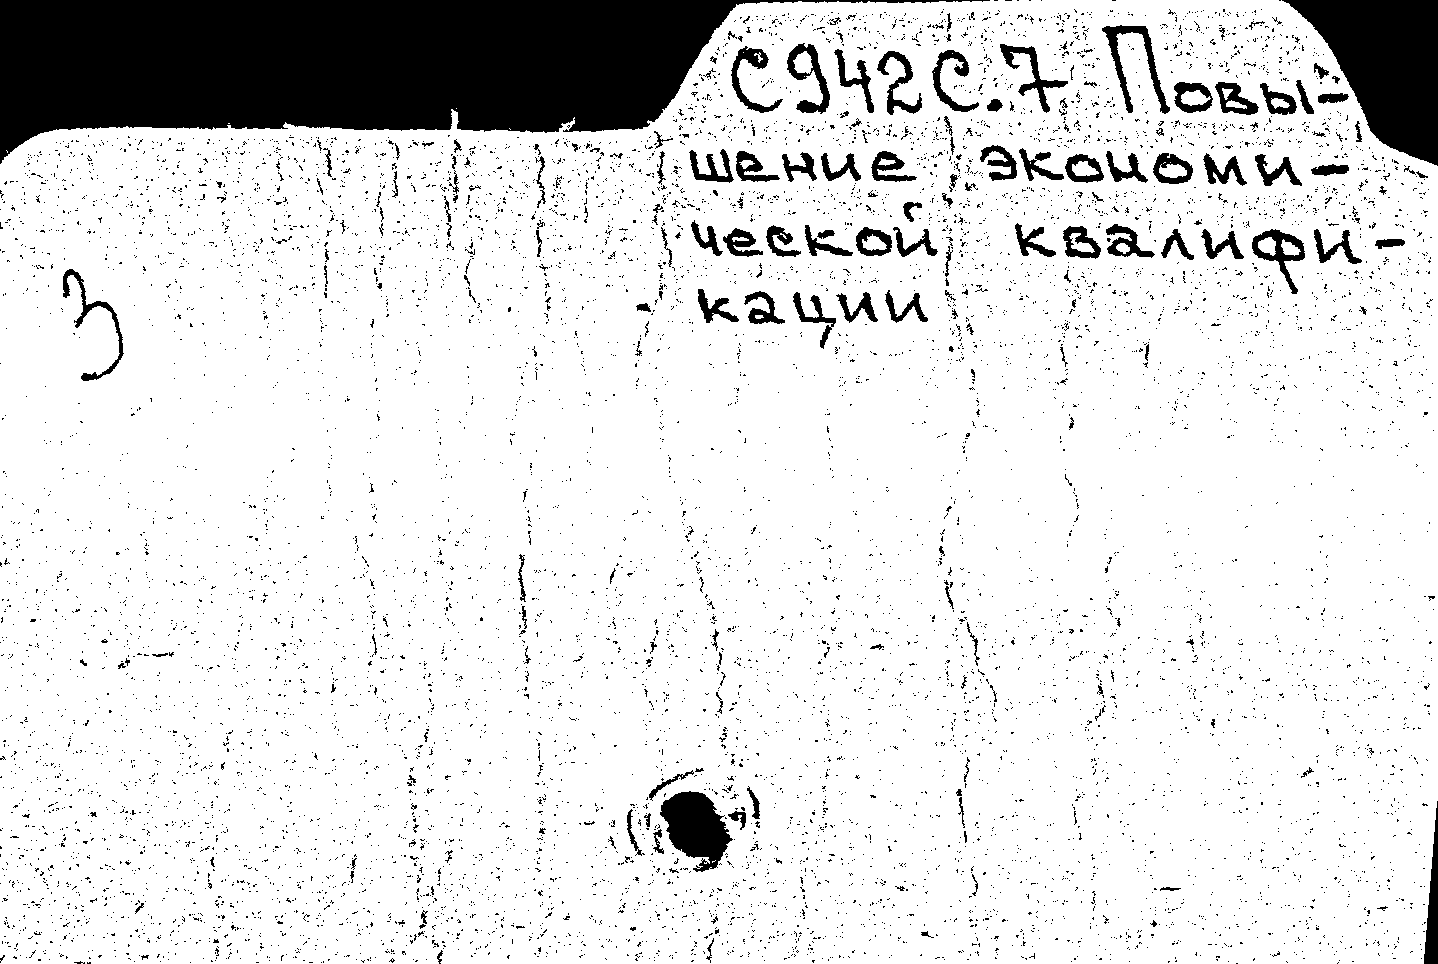 С942С.7 Повы-
шение экономи-
ческой квалифи-
кации
3